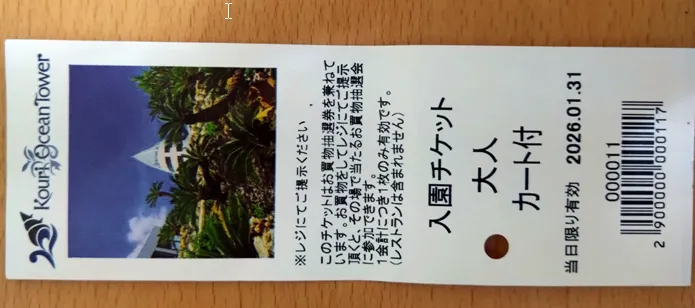 Kouri Ocean Tower
※レジにてご提示ください
このチケットはお買物抽選券を兼ねて
います。お買物をしてレジにてご提示
頂くと、その場で当たるお買物抽選会
に参加できます。
1会計につき1枚のみ有効です。
(レストランは含まれません)
入園チケット
大人
カート付
当日限り有効 2026.01.31
000011
2 900000 000117